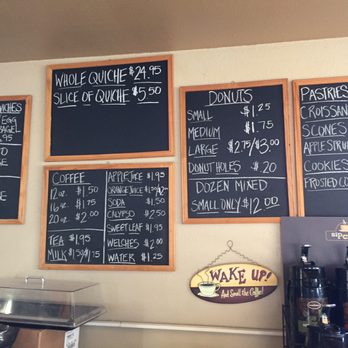 WICHES
EGG
BAGEL
WHOLE QUICHE $24.95
SLICE OF QUICHE $5.50
COFFEE
12 oz. $1.50
16 oz. $1.75
20 oz. $2.00
TEA $1.95
MILK $1.50/$1.75
APPLE JUICE $1.95
ORANGE JUICE
SODA $1.50
CALYPSO $2.50
SWEET LEAF $1.95
WELCHES $2.00
WATER $1.25
DONUTS
SMALL $1.25
MEDIUM $1.75
LARGE $2.75/$3.00
DONUT HOLES $.20
DOZEN MIXED
SMALL ONLY $12.00
PASTRIES
CROISSAN
SCONES
APPLE STRU
COOKIES
FROSTED CO
WAKE UP!
And Smell the Coffee!
sip